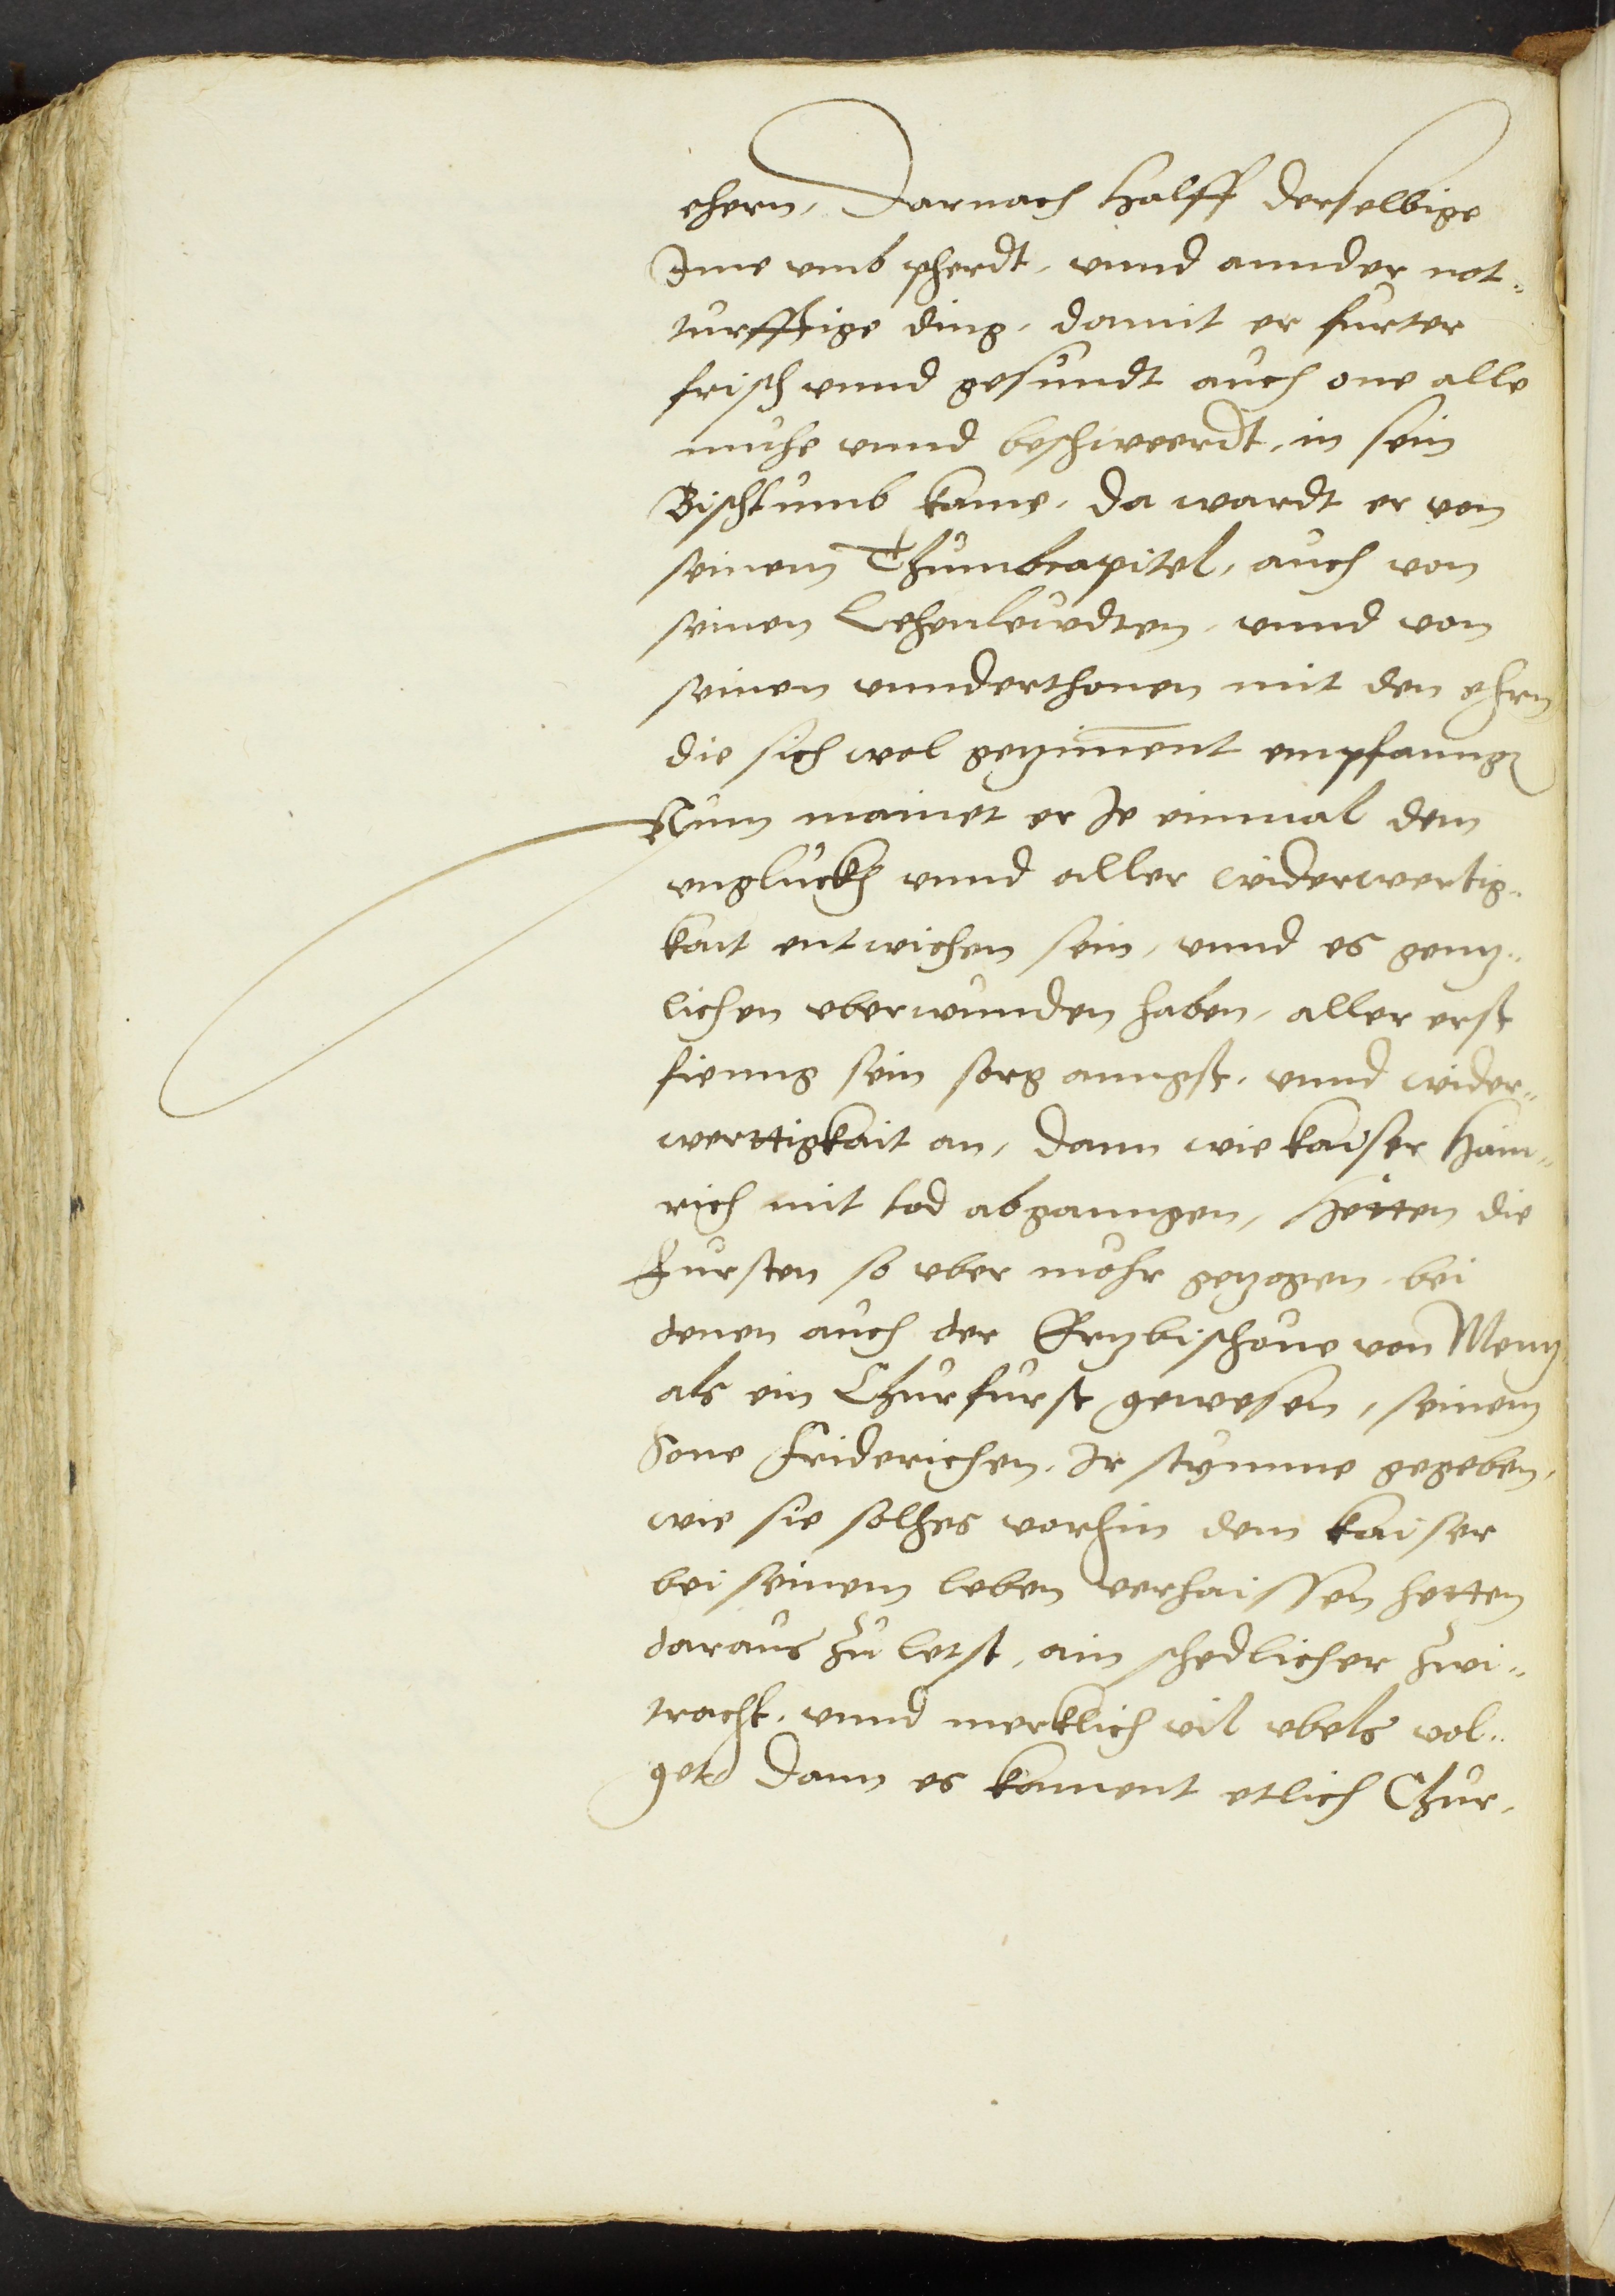 ehern, Darnach halff derselbige
Ime umb pherdt, unnd annder not-
turfftige ding, damit er furter
frisch unnd gesundt auch one alle
muhe unnd beschweerdt, in sein
Bischtumb kame, da wardt er von
seinem Thumbcapitel, auch von
seinen Lehenlewdten, unnd von
seinen unnderthonen mit den ehrn
die sich wol gezimment empfanngen
Nun mainet er Je einmal dem
unglückh unnd aller widerwertig-
kait entwichen sein, unnd es genz-
lichen uberwunden haben, aller erst
fienng sein sorg anngst, unnd wider-
werttigkait an, dann wie kaiser Hain-
rich mit tod abganngen, Hetten die
Fursten so uber mohr gezogen, bei
denen auch der Erzbischove von Menz
als ein Churfurst gewesen, seinem
Sone Friderichen, Ir stymme gegeben,
wie sie solhes vorhin dem kaiser
bei seinem leben verhaissen hetten
daraus zu letst, ain schedlicher zwi-
tracht, unnd merklich vil ubels vol-
get Dann es kament etlich Chur,